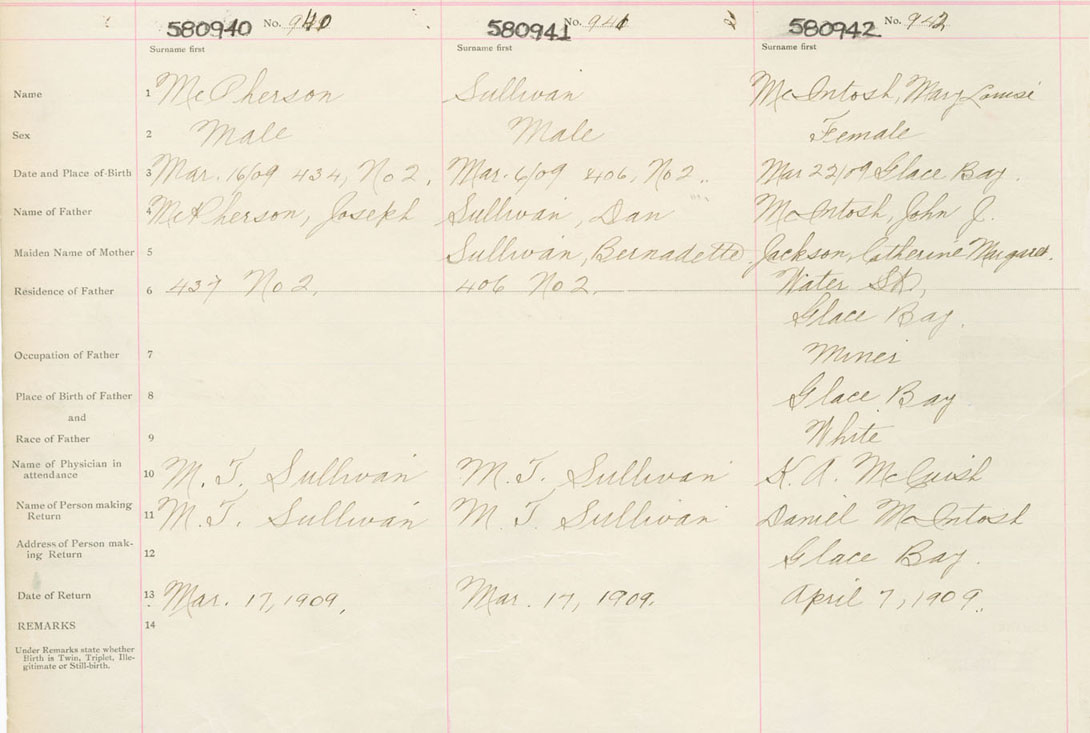 580940 No. 940 580941 No. 941 580942 No. 942
Surname first Surname first Surname first
Name 1 McPherson Sullivan McIntosh, Mary Louise
Sex 2 Male Male Female
Date and Place of Birth 3 Mar. 16/09 434, No 2. Mar. 6/09 406, No 2. Mar 22/09 Glace Bay.
Name of Father 4 McPherson, Joseph Sullivan, Dan McIntosh, John J.
Maiden Name of Mother 5 Sullivan, Bernadette Jackson, Catherine Margaret.
Residence of Father 6 437 No 2. 406 No 2. Water St,
Glace Bay.
Occupation of Father 7 Miner
Place of Birth of Father 8 Glace Bay
and
Race of Father 9 White
Name of Physician in
attendance 10 M. T. Sullivan M. T. Sullivan K. A. McCuish
Name of Person making
Return 11 M. T. Sullivan M. T. Sullivan Daniel McIntosh
Address of Person mak-
ing Return 12 Glace Bay.
Date of Return 13 Mar. 17, 1909. Mar. 17, 1909. April 7, 1909.
REMARKS 14
Under Remarks state whether
Birth is Twin, Triplet, Ille-
gitimate or Still-birth.